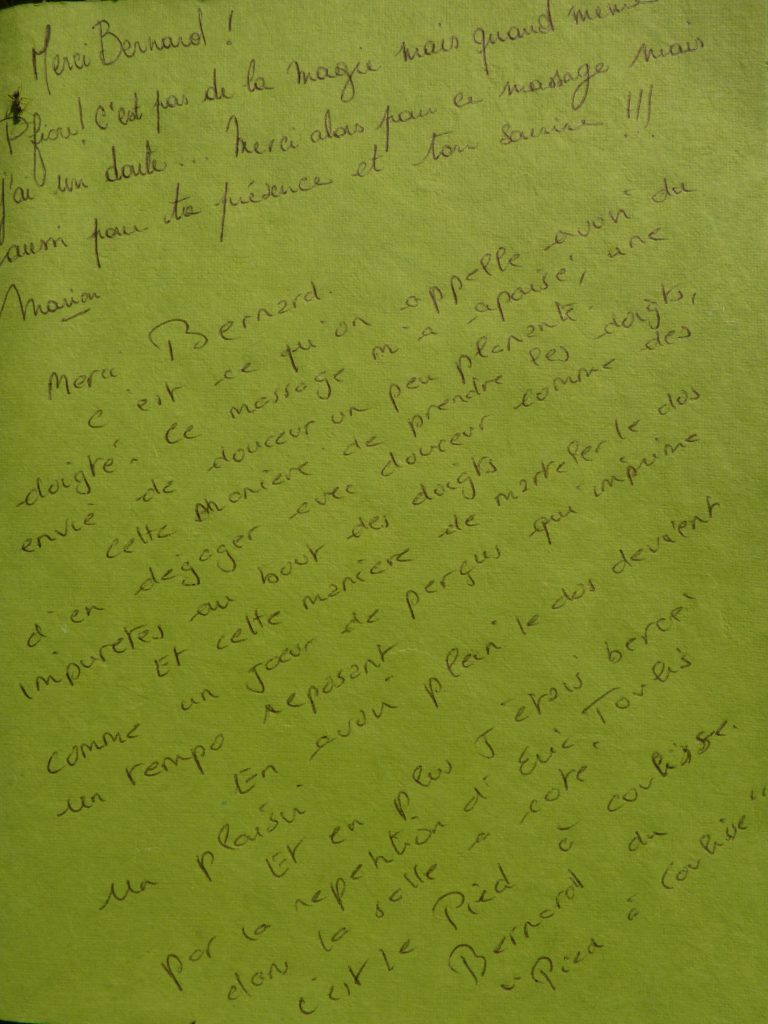 Merci Bernard !
Pfiou ! C'est pas de la magie mais quand même
j'ai un doute ... Merci alors pour ce massage mais
aussi pour ta présence et ton sourire !!!
Marion
Merci Bernard.
C'est ce qu'on appelle avoir du
doigté. Ce massage m'a apaisé, une
envie de douceur un peu planante.
Cette manière de prendre les doigts,
d'en dégager avec douceur comme des
impuretés au bout des doigts
Et cette manière de marteler le dos
comme un joeur de perçus qui imprime
un tempo reposant
En avoir plein le dos devient
un plaisir
Et en plus J'étais bercé
par la repetition d'Eric Toulis
dans la salle a coté.
c'est le Pied à coulisse.
Bernard du
"Pied à Coulisse"